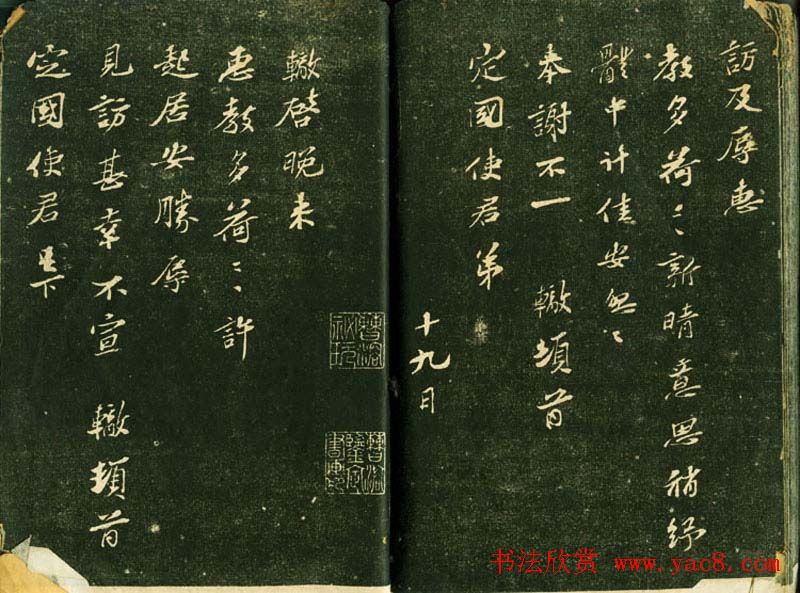 訪及辱惠
教多荷〻新晴意思稍紓
體中計佳安無〻
奉謝不一 轍頓首
定國使君弟
十九日
轍啓晚來
惠教多荷〻許
起居安勝辱
見訪甚幸不宣 轍頓首
定國使君足下
曹溶
曹溶
書法欣賞 www.yac8.com